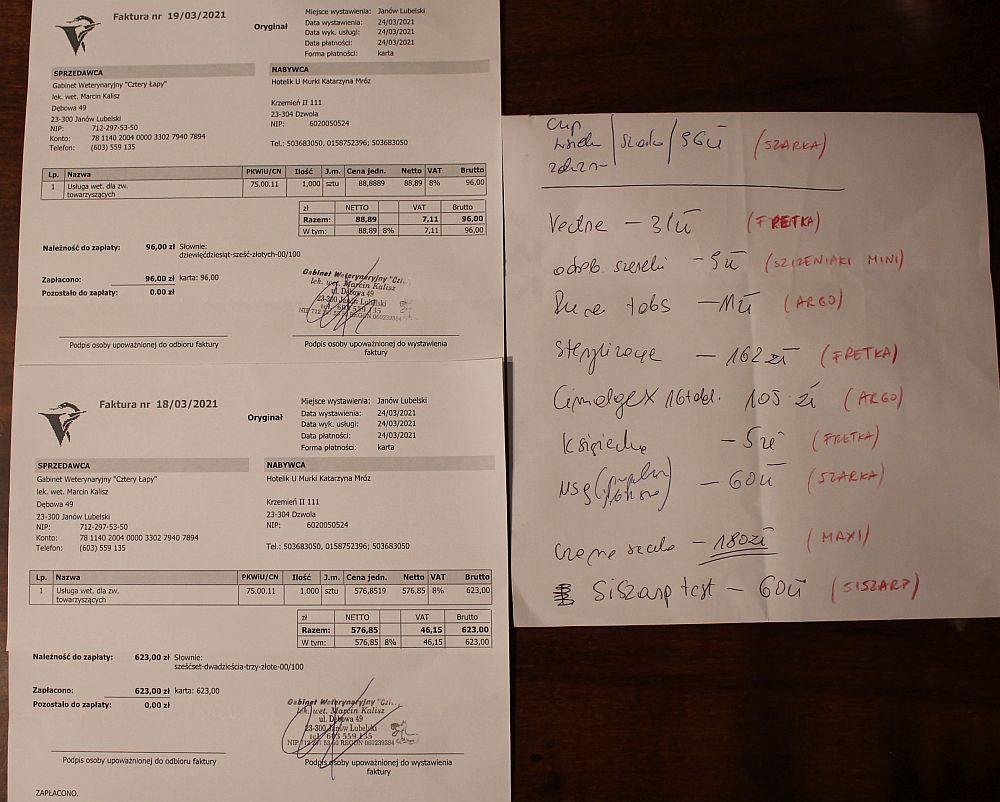 Faktura nr 19/03/2021
Oryginał
Miejsce wystawienia: Janów Lubelski
Data wystawienia: 24/03/2021
Data wyk. usługi: 24/03/2021
Data płatności: 24/03/2021
Forma płatności: karta
SPRZEDAWCA
Gabinet Weterynaryjny "Cztery Łapy"
lek. wet. Marcin Kalisz
Dębowa 49
23-300 Janów Lubelski
NIP: 712-297-53-50
Konto: 78 1140 2004 0000 3302 7940 7894
Telefon: (603) 559 135
NABYWCA
Hotelik U Murki Katarzyna Mróz
Krzemień II 111
23-304 Dzwola
NIP: 6020050524
Tel.: 503683050, 0158752396; 503683050
Lp. Nazwa PKWiU/CN Ilość J.m. Cena jedn. Netto VAT Brutto
1 Usługa wet. dla zw. 75.00.11 1,000 sztu 88,8889 88,89 8% 96,00
towarzyszących
zł NETTO VAT Brutto
Razem: 88,89 7,11 96,00
W tym: 88,89 8% 7,11 96,00
Należność do zapłaty: 96,00 zł Słownie:
dziewięćdziesiąt-sześć-złotych-00/100
Zapłacono: 96,00 zł karta: 96,00
Pozostało do zapłaty: 0,00 zł
Gabinet Weterynaryjny
lek. wet. Marcin Kalisz
ul. Dębowa 49
23-300 Janów Lubelski
tel. 603 559 135
NIP 712 297 53 50 REGON 060239384
Podpis osoby upoważnionej do odbioru faktury
Podpis osoby upoważnionej do wystawienia
faktury
Faktura nr 18/03/2021
Oryginał
Miejsce wystawienia: Janów Lubelski
Data wystawienia: 24/03/2021
Data wyk. usługi: 24/03/2021
Data płatności: 24/03/2021
Forma płatności: karta
SPRZEDAWCA
Gabinet Weterynaryjny "Cztery Łapy"
lek. wet. Marcin Kalisz
Dębowa 49
23-300 Janów Lubelski
NIP: 712-297-53-50
Konto: 78 1140 2004 0000 3302 7940 7894
Telefon: (603) 559 135
NABYWCA
Hotelik U Murki Katarzyna Mróz
Krzemień II 111
23-304 Dzwola
NIP: 6020050524
Tel.: 503683050, 0158752396; 503683050
Lp. Nazwa PKWiU/CN Ilość J.m. Cena jedn. Netto VAT Brutto
1 Usługa wet. dla zw. 75.00.11 1,000 sztu 576,8519 576,85 8% 623,00
towarzyszących
zł NETTO VAT Brutto
Razem: 576,85 46,15 623,00
W tym: 576,85 8% 46,15 623,00
Należność do zapłaty: 623,00 zł Słownie:
sześćset-dwadzieścia-trzy-złote-00/100
Zapłacono: 623,00 zł karta: 623,00
Pozostało do zapłaty: 0,00 zł
Gabinet Weterynaryjny
lek. wet. Marcin Kalisz
ul. Dębowa 49
23-300 Janów Lubelski
tel. 603 559 135
NIP 712 297 53 50 REGON 060239384
Podpis osoby upoważnionej do odbioru faktury
Podpis osoby upoważnionej do wystawienia
faktury
ZAPŁACONO.
96 zł (SZARKA)
– 31 zł (FRETKA)
– 9 zł (SZCZENIAKI MINI)
tabs – 11 zł (ARGO)
Sterylizacja – 162 zł (FRETKA)
Cimalgex 16 tabl. 105 zł (ARGO)
Książeczka – 5 zł (FRETKA)
USG – 60 zł (SZARKA)
– 180 zł (MAXI)
Siszarp test – 60 zł (SISZARP)